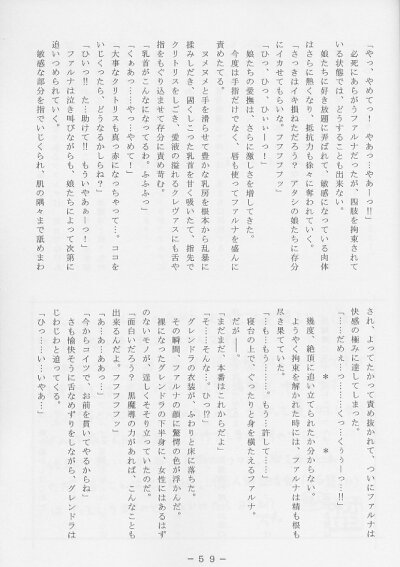 「やっ、やめてっ！　やあっ…やあーっ!!」
　必死にあらがうファルナだったが、四肢を拘束されて
いる状態では、どうすることも出来ない。
　娘たちに好き放題に弄ばれて、敏感になっている肉体
はさらに熱くなり、抵抗力も徐々に奪われていく。
「さっきはイキ損ねただろう？　アタシの娘たちに存分
にイカせてもらいな。フフフフフッ」
「ひっ、ひっ、ひぃぃーっ！」
　娘たちの愛撫は、さらに激しさを増してきた。
　今度は手指だけでなく、唇も使ってファルナを盛んに
責めたてる。
　ヌメヌメと手を滑らせて豊かな乳房を根本から乱暴に
揉みしだき、固くしこった乳首を甘く吸いたて、指先で
クリトリスをしごき、愛液の溢れるクレヴァスにも舌や
指をもぐり込ませて存分に責め苛む。
「乳首がこんなになってるわ。ふふふっ」
「くぁあっ……やっ…やめて！」
「大事なクリトリスも真っ赤になっちゃって…。ココを
いじくったら、どうなるかしらね？」
「ひいっ!!　た…助けて!!　もういやあぁーっ！」
　ファルナは泣き叫びながらも、娘たちによって次第に
追いつめられていく。
　敏感な部分を指でいじくられ、肌の隅々まで舐めまわ
され、よってたかって責め抜かれて、ついにファルナは
快感の極みに達してしまった。
「……だめぇ…っ……くっ…くうぅーっ…!!」
＊　　＊
　幾度、絶頂に追い立てられたか分からない。
　ようやく拘束を解かれた時には、ファルナは精も根も
尽き果てていた。
「…も…もう……。もう…許して……」
　寝台の上で、ぐったりと身を横たえるファルナ。
　だが――。
「まだまだ、本番はこれからだよ」
「そ……そんな…。ひっ!?」
　グレンドラの衣装が、ふわりと床に落ちた。
　その瞬間、ファルナの顔に驚愕の色が浮かんだ。
　裸になったグレンドラの下半身に、女性にはあるはず
のないモノが、逞しくそそり立っていたのだ。
「面白いだろう？　黒魔導の力があれば、こんなことも
出来るんだよ。フフフフフッ」
「あ…あ…ああっ…」
「今からコイツで、お前を貫いてやるからね」
　さも愉快そうに舌なめずりをしながら、グレンドラは
じわじわと迫ってくる。
「ひっ……い…いやあ…」
－59－